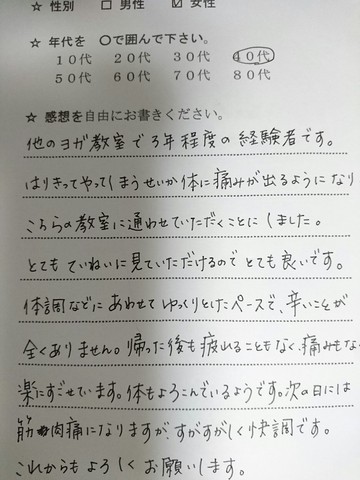 ☆ 性別 □ 男性 ☑ 女性
☆ 年代を 〇で囲んで下さい。
10代 20代 30代 40代
50代 60代 70代 80代
☆ 感想を自由にお書きください。
他のヨガ教室で3年程度の経験者です。
はりきってやってしまうせいか体に痛みが出るようになり
こちらの教室に通わせていただくことにしました。
とてもていねいに見ていただけるのでとても良いです。
体調などにあわせてゆっくりとしたペースで、辛いことが
全くありません。帰った後も疲れることもなく、痛みもな
楽にすごせています。体もよろこんでいるようです。次の日には
筋肉痛になりますが、すがすがしく快調です。
これからもよろしくお願いします。